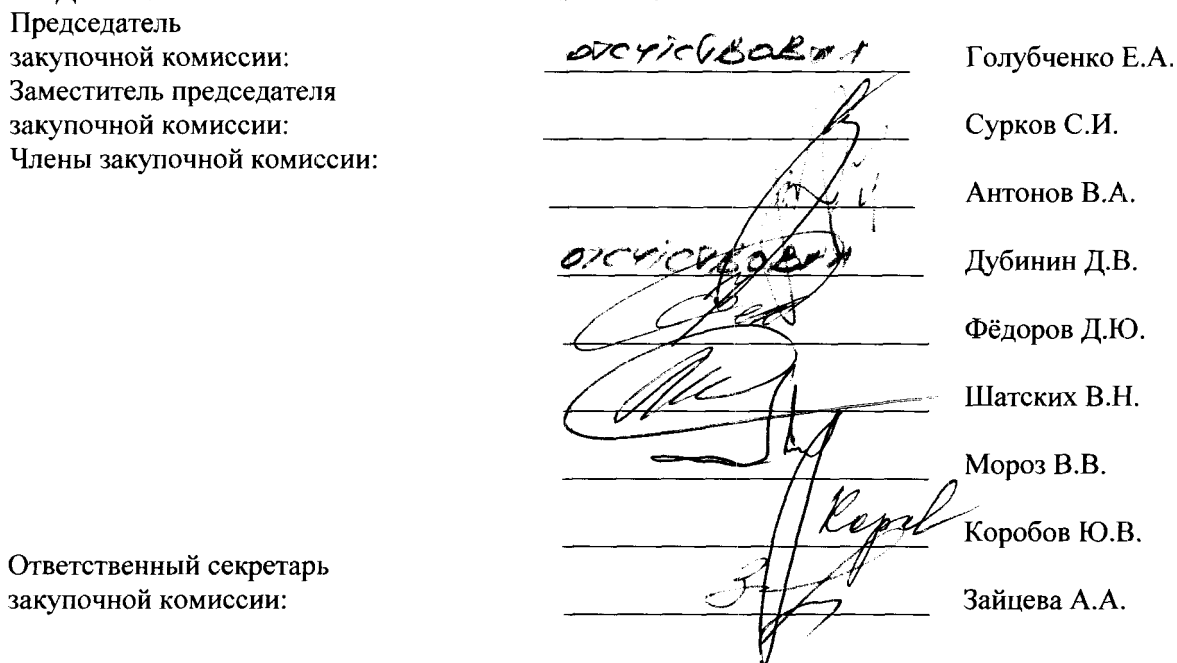 Председатель
закупочной комиссии: отсутствовал Голубченко Е.А.
Заместитель председателя
закупочной комиссии: Сурков С.И.
Члены закупочной комиссии:
Антонов В.А.
отсутствовал Дубинин Д.В.
Фёдоров Д.Ю.
Шатских В.Н.
Мороз В.В.
Коробов Ю.В.
Ответственный секретарь
закупочной комиссии: Зайцева А.А.